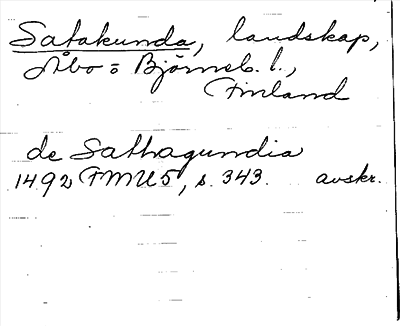 Satakunda, landskap,
Åbo o Björneb. l.,
Finland
de Sathagundia
1492 FMU 5, s. 343. avskr.